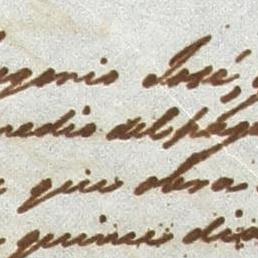 egorio José,
medio del pago
que obra
quince dias